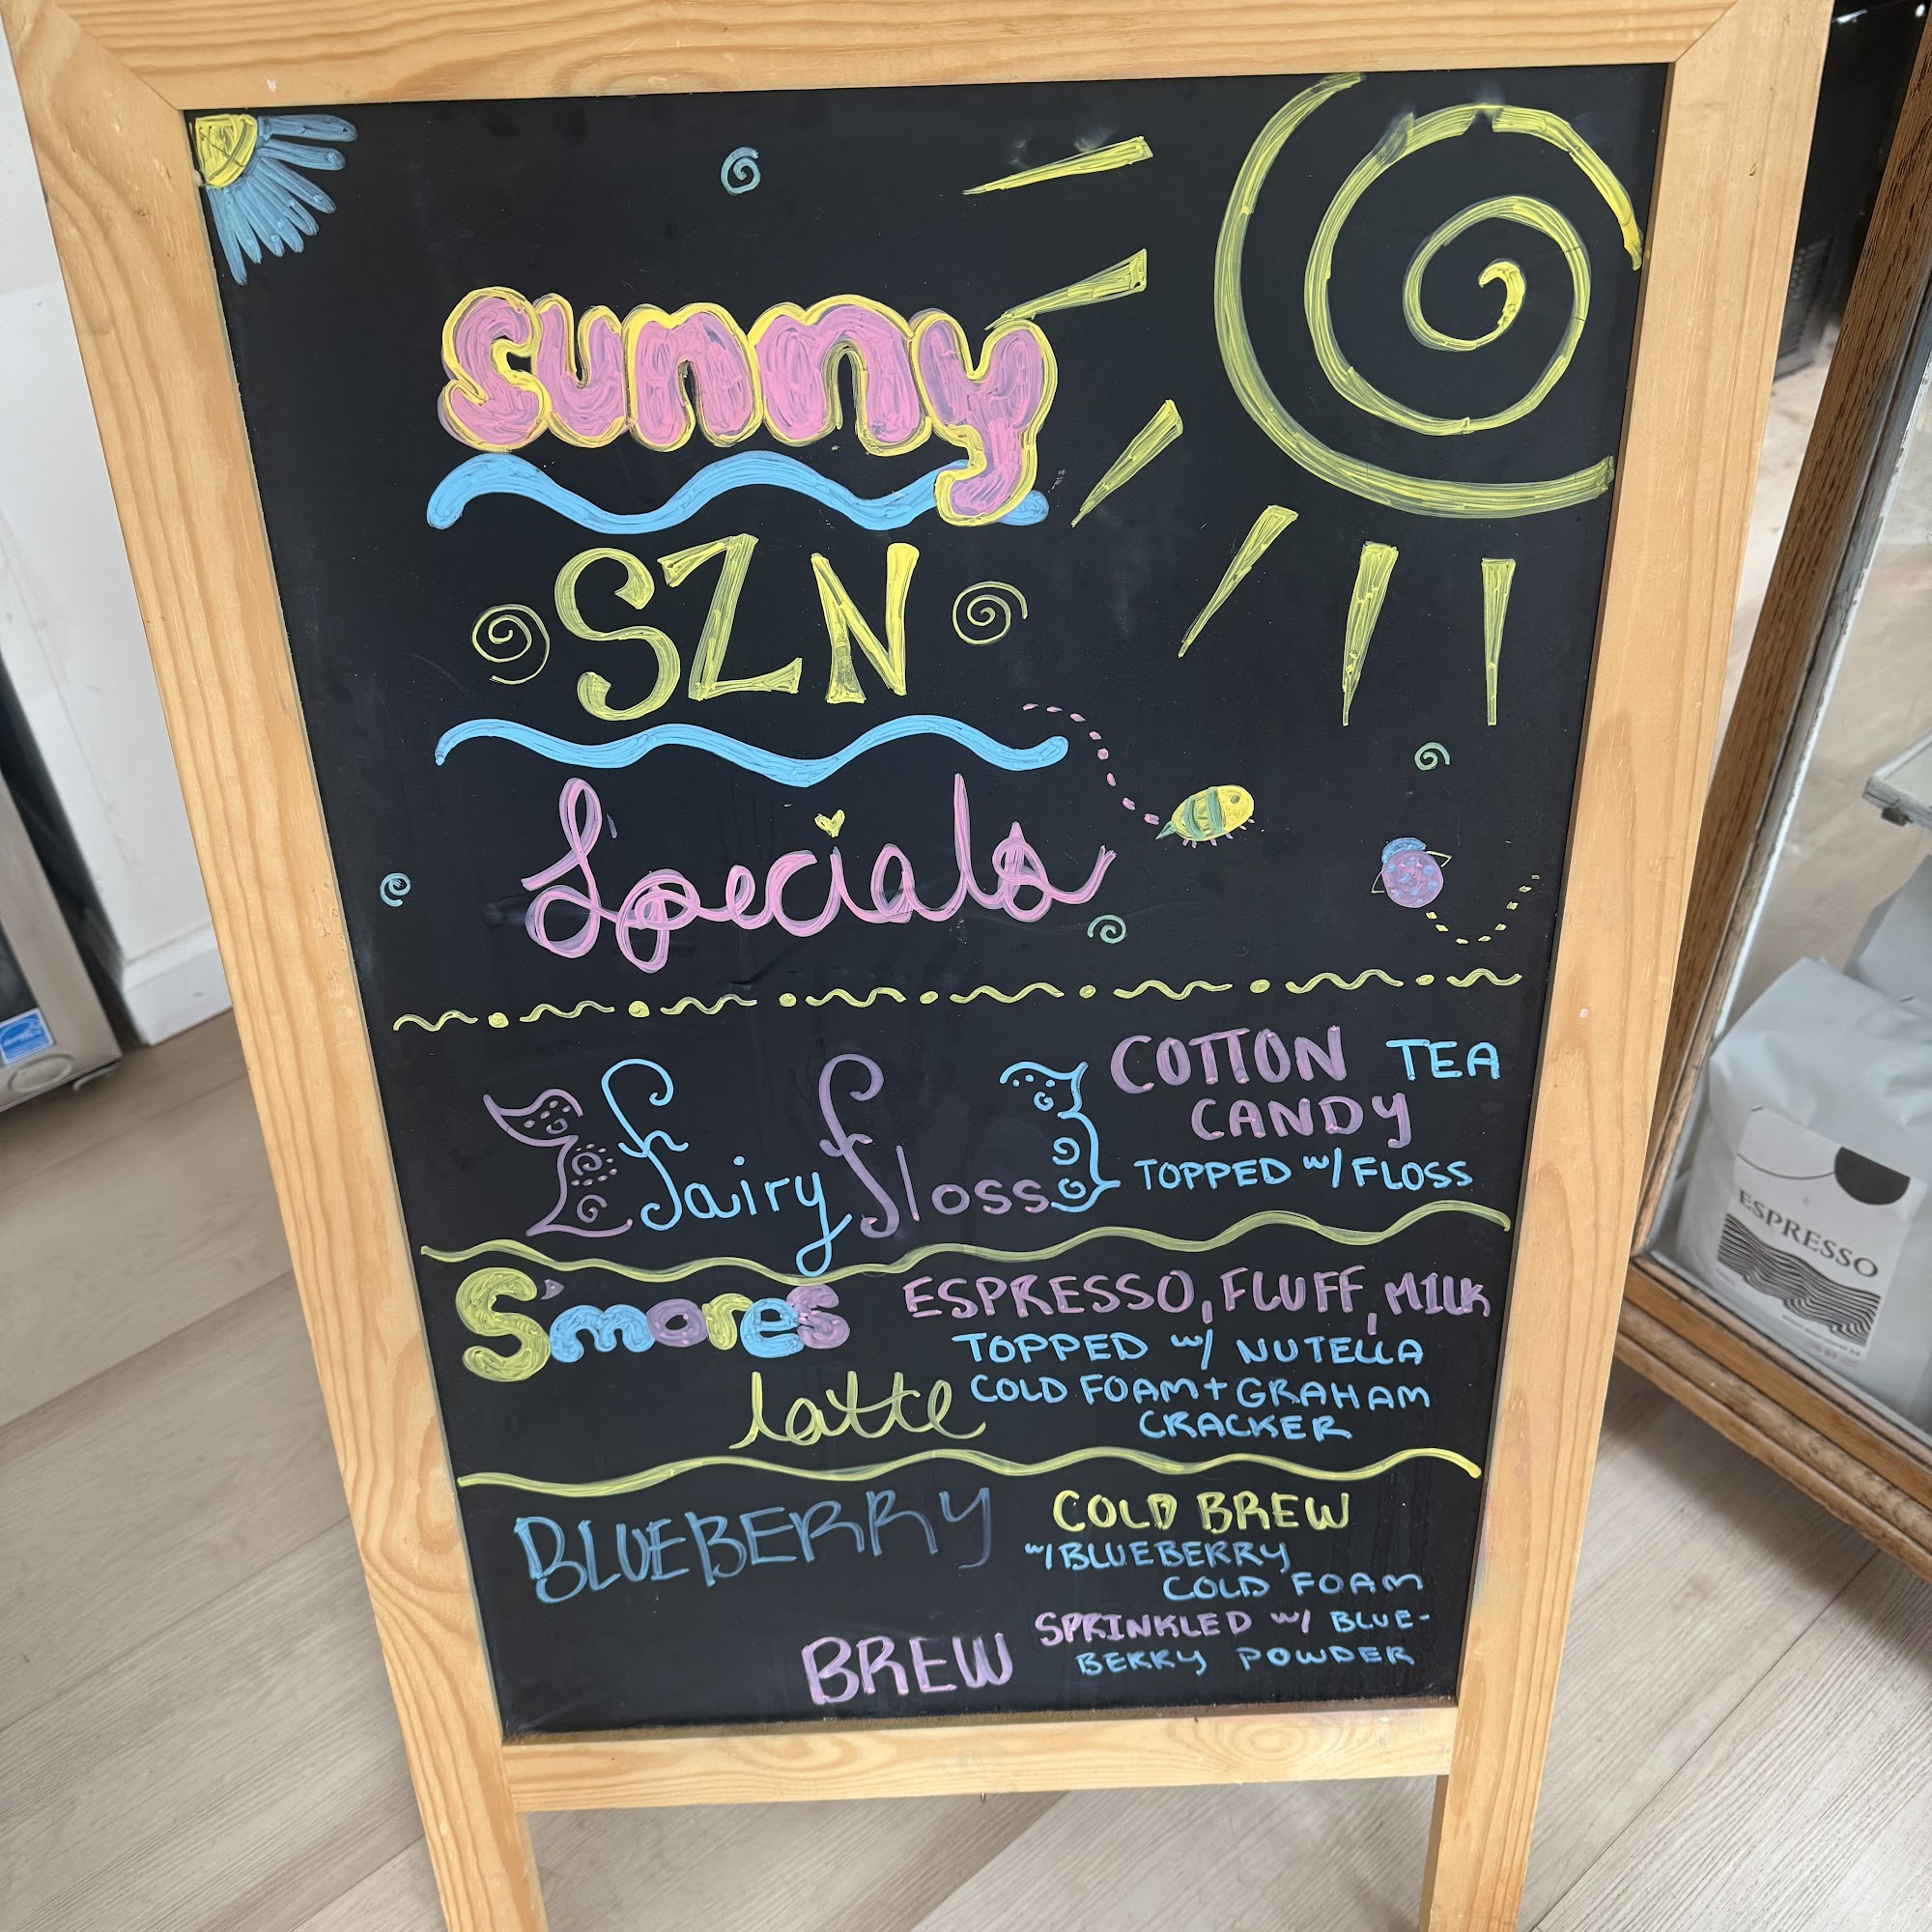 sunny
SZN
Specials
fairy floss
COTTON TEA
CANDY
TOPPED w/ FLOSS
S'mores
latte
ESPRESSO, FLUFF, MILK
TOPPED w/ NUTELLA
COLD FOAM + GRAHAM
CRACKER
BLUEBERRY
BREW
COLD BREW
w/ BLUEBERRY
COLD FOAM
SPRINKLED w/ BLUE-
BERRY POWDER
ESPRESSO